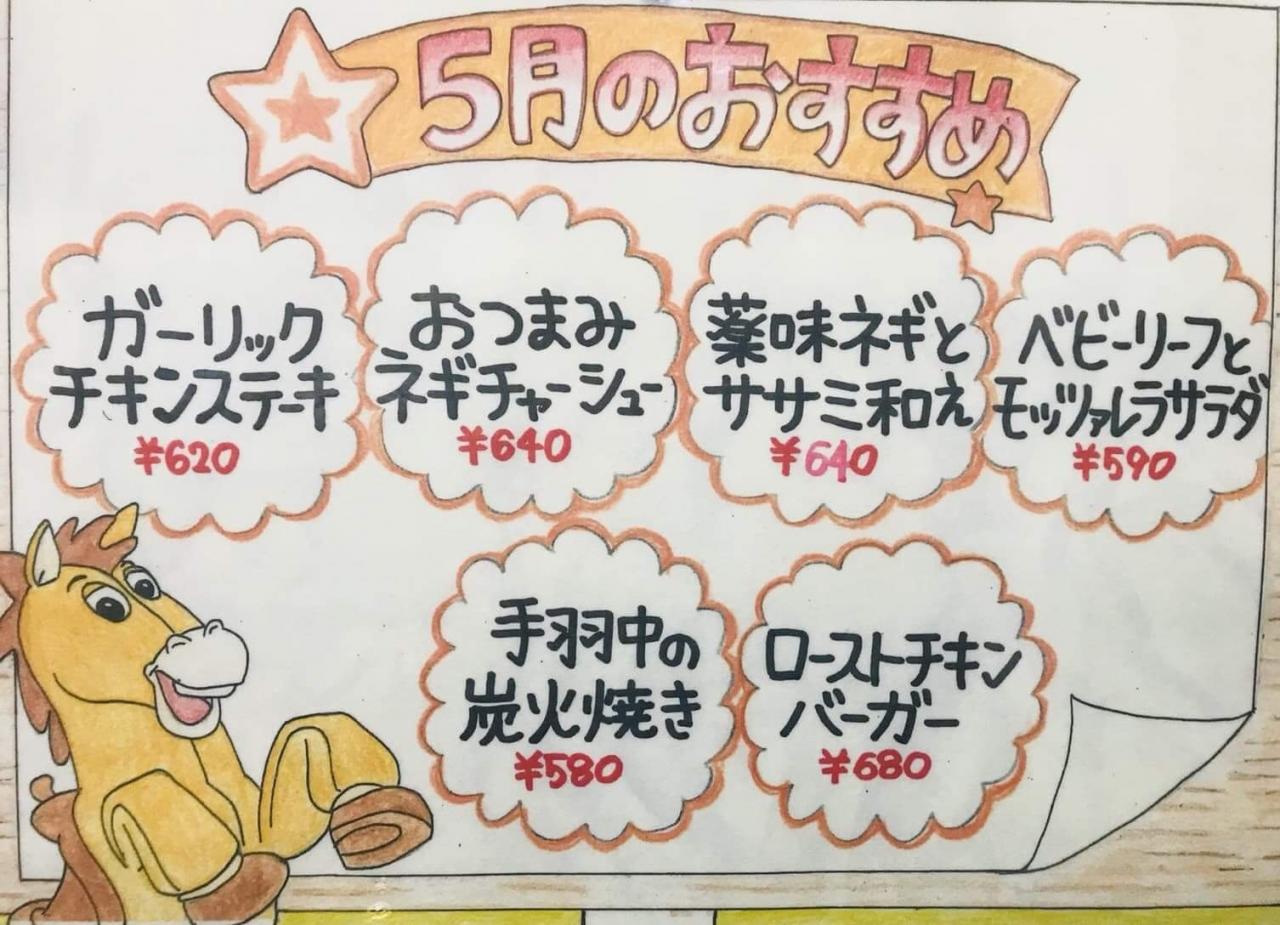 5月のおすすめ
ガーリック
チキンステーキ
¥620
おつまみ
ネギチャーシュー
¥640
薬味ネギと
ササミ和え
¥640
ベビーリーフと
モッツァレラサラダ
¥590
手羽中の
炭火焼き
¥580
ローストチキン
バーガー
¥680